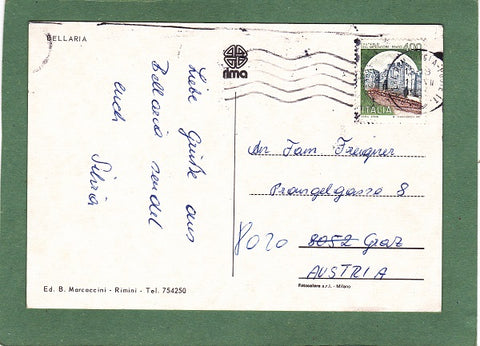 BELLARIA
rima
400
ITALIA
Liebe Grüße aus
Bellaria sendet
euch Silvia
An Fam.
8
8020 8052 Graz
AUSTRIA
Ed. B. Marcaccini - Rimini - Tel. 754250
- Milano